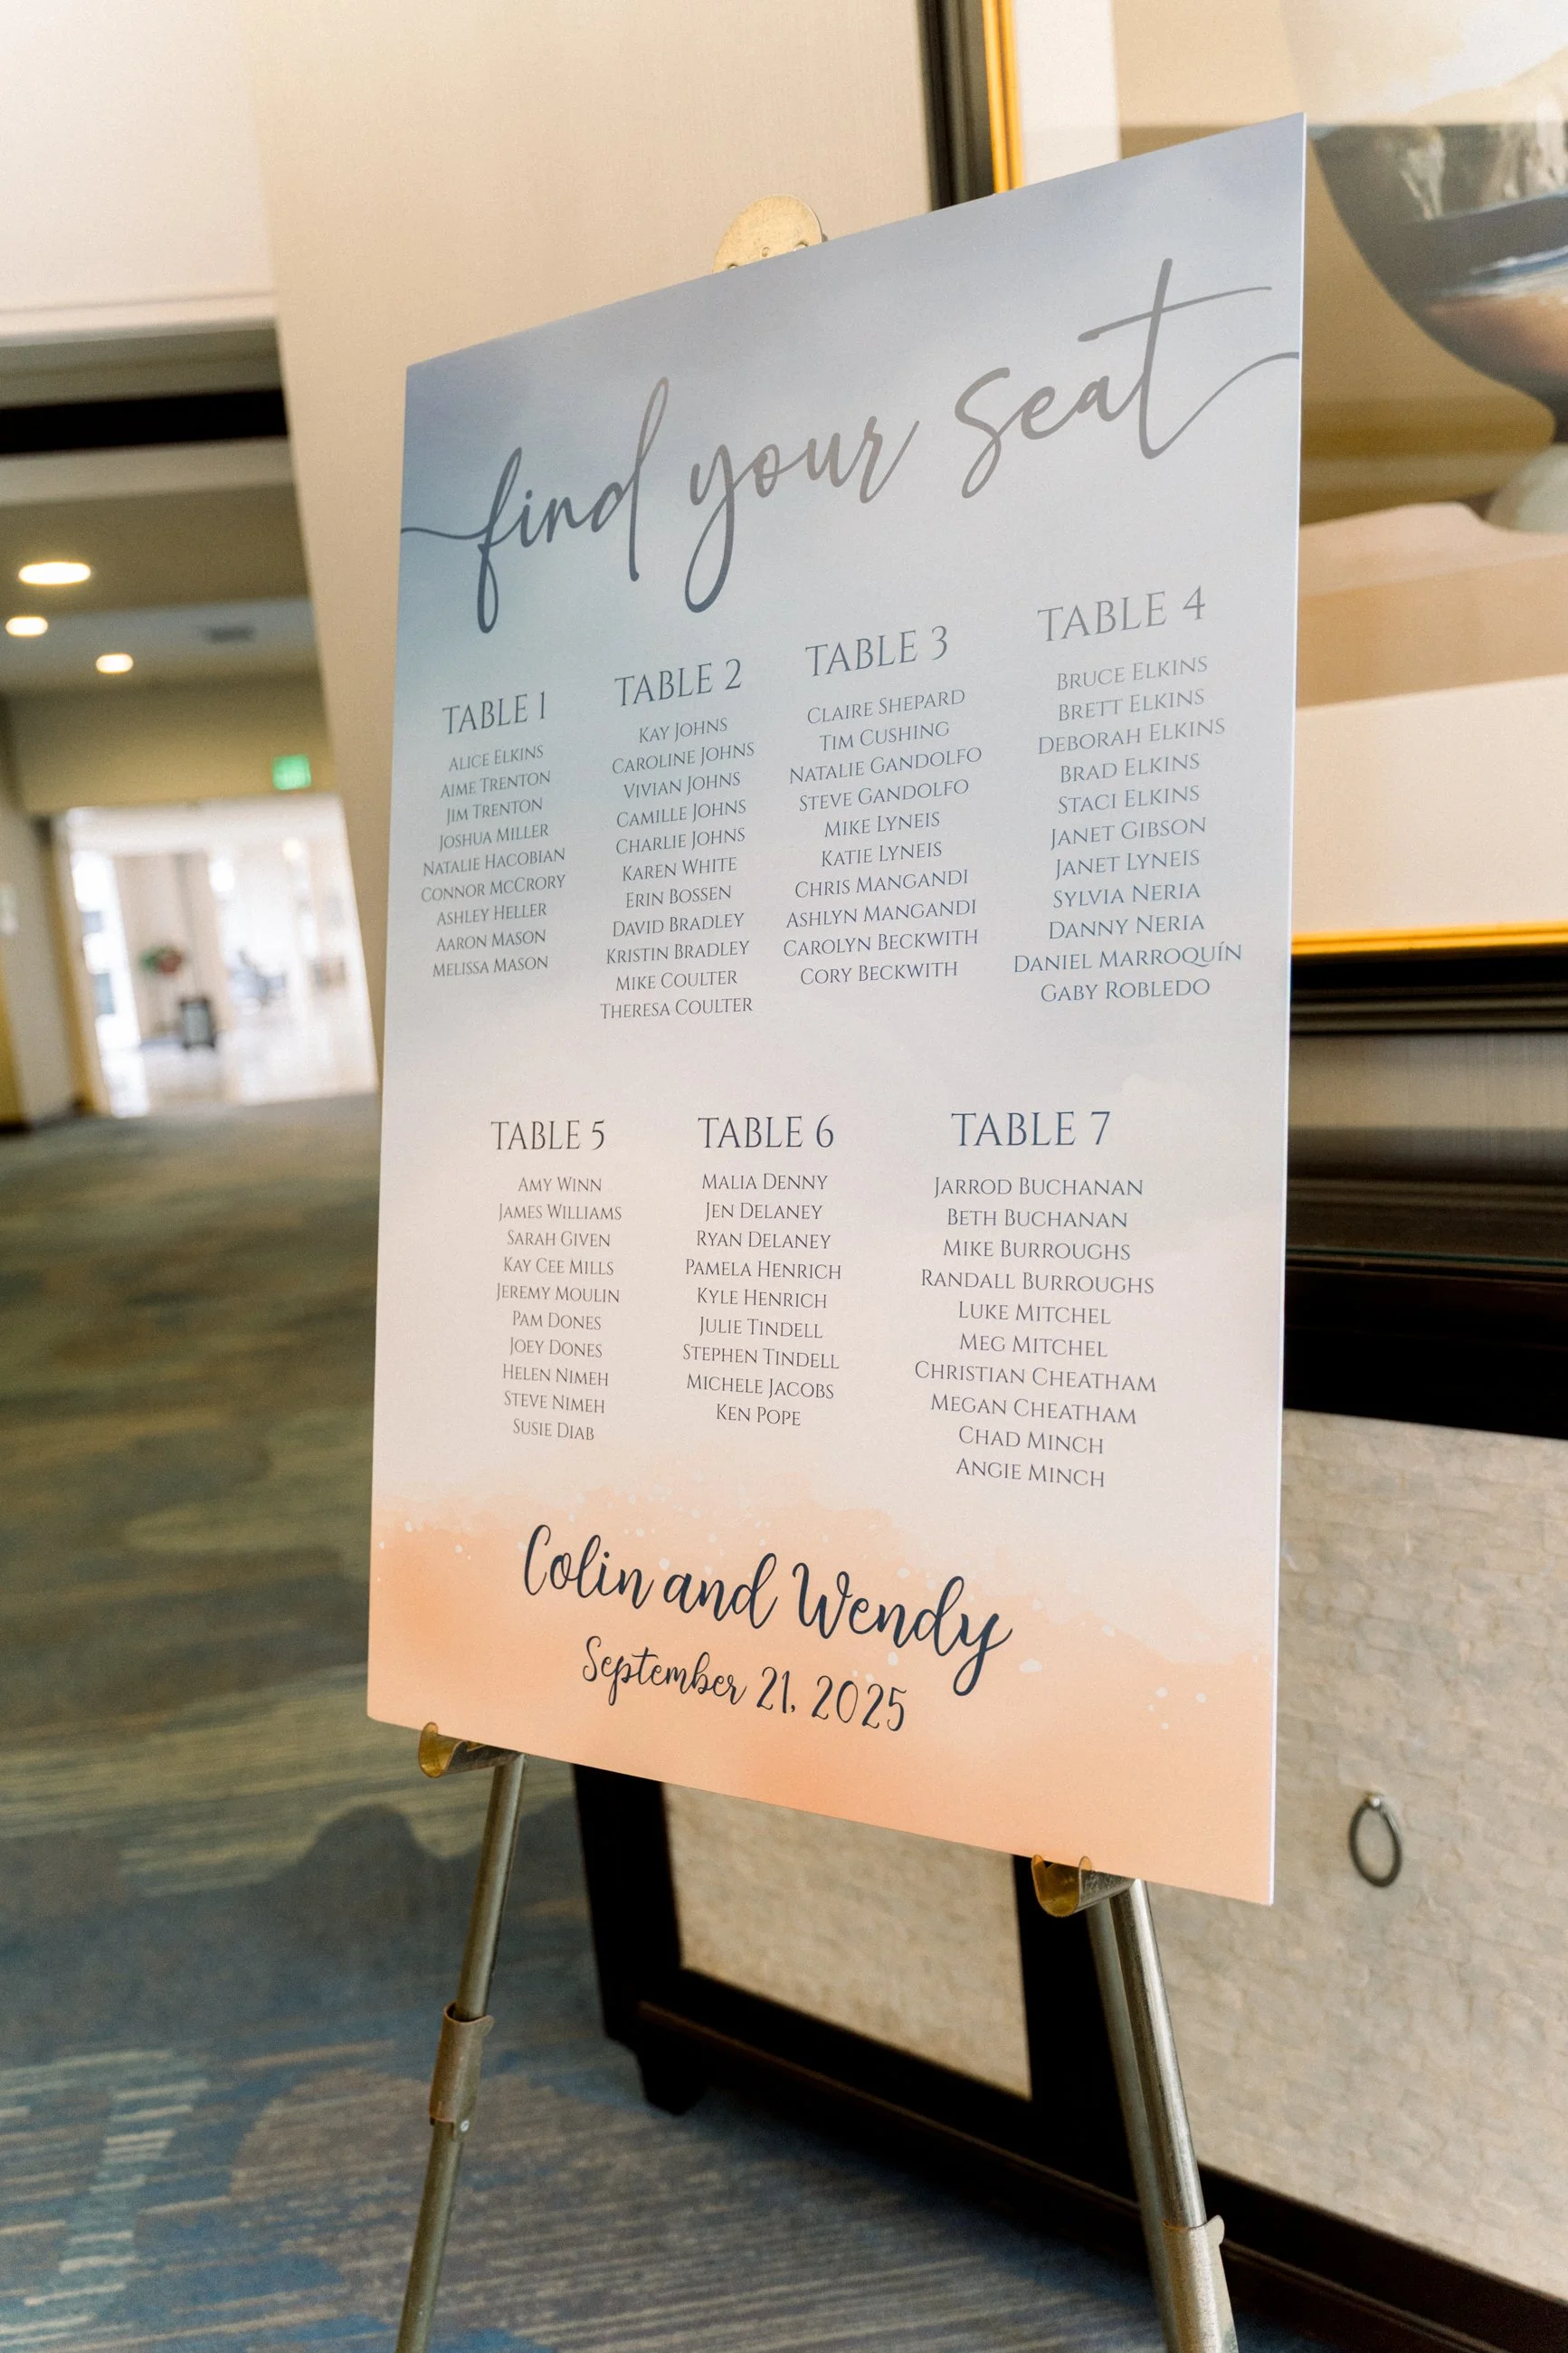 find your seat
TABLE 1
ALICE ELKINS
AIME TRENTON
JIM TRENTON
JOSHUA MILLER
NATALIE HACOBIAN
CONNOR MCCRORY
ASHLEY HELLER
AARON MASON
MELISSA MASON
TABLE 2
KAY JOHNS
CAROLINE JOHNS
VIVIAN JOHNS
CAMILLE JOHNS
CHARLIE JOHNS
KAREN WHITE
ERIN BOSSEN
DAVID BRADLEY
KRISTIN BRADLEY
MIKE COULTER
THERESA COULTER
TABLE 3
CLAIRE SHEPARD
TIM CUSHING
NATALIE GANDOLFO
STEVE GANDOLFO
MIKE LYNEIS
KATIE LYNEIS
CHRIS MANGANDI
ASHLYN MANGANDI
CAROLYN BECKWITH
CORY BECKWITH
TABLE 4
BRUCE ELKINS
BRETT ELKINS
DEBORAH ELKINS
BRAD ELKINS
STACI ELKINS
JANET GIBSON
JANET LYNEIS
SYLVIA NERIA
DANNY NERIA
DANIEL MARROQUÍN
GABY ROBLEDO
TABLE 5
AMY WINN
JAMES WILLIAMS
SARAH GIVEN
KAY CEE MILLS
JEREMY MOULIN
PAM DONES
JOEY DONES
HELEN NIMEH
STEVE NIMEH
SUSIE DIAB
TABLE 6
MALIA DENNY
JEN DELANEY
RYAN DELANEY
PAMELA HENRICH
KYLE HENRICH
JULIE TINDELL
STEPHEN TINDELL
MICHELE JACOBS
KEN POPE
TABLE 7
JARROD BUCHANAN
BETH BUCHANAN
MIKE BURROUGHS
RANDALL BURROUGHS
LUKE MITCHEL
MEG MITCHEL
CHRISTIAN CHEATHAM
MEGAN CHEATHAM
CHAD MINCH
ANGIE MINCH
Colin and Wendy
September 21, 2025